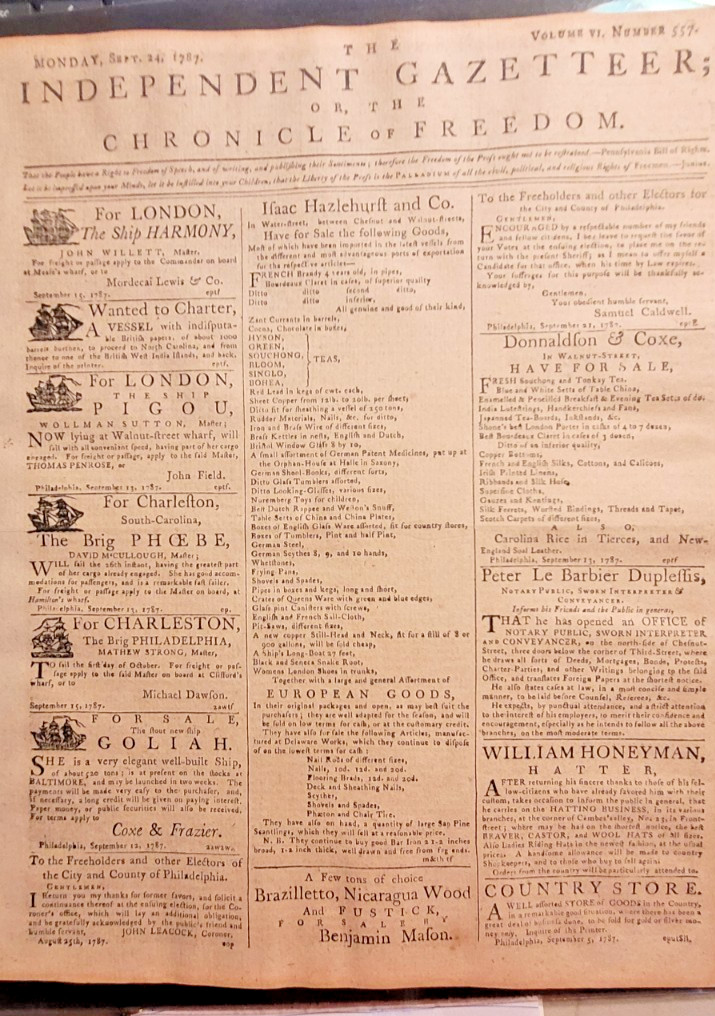 MONDAY, SEPT. 24, 1787.
THE
VOLUME VI. NUMBER 557.
INDEPENDENT GAZETTEER;
OR, THE
CHRONICLE OF FREEDOM.
That the People have a Right to Freedom of Speech, and of writing, and publishing their Sentiments; therefore the Freedom of the Preſs ought not to be reſtrained.—Pennſylvania Bill of Rights.
Let it be impreſſed upon your Minds, let it be inſtilled into your Children, that the Liberty of the Preſs is the PALLADIUM of all the civil, political, and religious Rights of Freemen.—Junius.
For LONDON,
The Ship HARMONY,
JOHN WILLETT, Maſter,
For freight or paſſage apply to the Commander on board
at wharf, or to
Mordecai Lewis & Co.
September 15, 1787. eptf
Wanted to Charter,
A VESSEL with indiſputa-
ble Britiſh papers, of about 1000
barrels burthen, to proceed to North Carolina, and from
thence to one of the Britiſh Weſt India Iſlands, and back.
Inquire of the printer. eptf.
For LONDON,
THE SHIP
PIGOU,
WOLLMAN SUTTON, Maſter;
NOW lying at Walnut-ſtreet wharf, will
ſail with all convenient ſpeed, having part of her cargo
engaged. For freight or paſſage, apply to the ſaid Maſter,
THOMAS PENROSE, or
John Field.
Philadelphia, September 13, 1787. eptf.
For Charleſton,
South-Carolina,
The Brig PHŒBE,
DAVID McCULLOUGH, Maſter;
WILL ſail the 26th inſtant, having the greateſt part
of her cargo already engaged. She has good accom-
modations for paſſengers, and is a remarkable faſt ſailer.
For freight or paſſage apply to the Maſter on board, at
Hamilton's wharf.
Philadelphia, September 13, 1787. ep.
For CHARLESTON,
The Brig PHILADELPHIA,
MATHEW STRONG, Maſter,
TO ſail the firſt day of October. For freight or paſ-
ſage apply to the ſaid Maſter on board at Clifford's
wharf, or to
Michael Dawſon.
September 15, 1787. 2awtf
FOR SALE,
The ſtout new ſhip
GOLIAH.
SHE is a very elegant well-built Ship,
of about 500 tons; is at preſent on the ſtocks at
BALTIMORE, and may be launched in two weeks. The
payments will be made very eaſy to the purchaſer, and,
if neceſſary, a long credit will be given on paying intereſt.
Paper money, or public ſecurities will alſo be received.
For terms apply to
Coxe & Frazier.
Philadelphia, September 12, 1787.
To the Freeholders and other Electors of
the City and County of Philadelphia.
GENTLEMEN,
I Return you my thanks for former favors, and ſolicit a
continuance thereof at the enſuing election, for the Co-
roner's office, which will lay an additional obligation,
and be gratefully acknowledged by the public's friend and
humble ſervant, JOHN LEACOCK, Coroner.
Auguſt 25th, 1787. eop
Iſaac Hazlehurſt and Co.
In Water-ſtreet, between Cheſnut and Walnut-ſtreets,
Have for Sale the following Goods,
Moſt of which have been imported in the lateſt veſſels from
the different and moſt advantageous ports of exportation
for the reſpective articles—
FRENCH Brandy 4 years old, in pipes,
Bourdeaux Claret in caſes, of ſuperior quality
Ditto ditto ſecond ditto,
Ditto ditto inferior,
All genuine and good of their kind,
Zant Currants in barrels,
Cocoa, Chocolate in boxes,
HYSON,
GREEN,
SOUCHONG,
BLOOM,
SINGLO,
BOHEA,
TEAS,
Red Lead in kegs of cwt. each,
Sheet Copper from 12lb. to 20lb. per ſheet,
Ditto fit for ſheathing a veſſel of 250 tons,
Rudder Materials, Nails, &c. for ditto,
Iron and Braſs Wire of different ſizes,
Braſs Kettles in neſts, Engliſh and Dutch,
Briſtol Window Glaſs 8 by 10,
A ſmall aſſortment of German Patent Medicines, put up at
the Orphan-Houſe at Halle in Saxony,
German Sheet-Books, different ſorts,
Ditto Glaſs Tumblers aſſorted,
Ditto Looking-Glaſſes, various ſizes,
Nuremberg Toys for children,
Beſt Dutch Rappee and Weſton's Snuff,
Table Setts of China and China Plates,
Boxes of Engliſh Glaſs Ware aſſorted, fit for country ſtores,
Boxes of Tumblers, Pint and half Pint,
German Steel,
German Scythes 8, 9, and 10 hands,
Whetſtones,
Frying-Pans,
Shovels and Spades,
Pipes in boxes and kegs, long and ſhort,
Crates of Queens Ware with green and blue edges,
Glaſs pint Caniſters with ſcrews,
Engliſh and French Sail-Cloth,
Pit-Saws, different ſizes,
A new copper Still-Head and Neck, fit for a ſtill of 8 or
900 gallons, will be ſold cheap,
A Ship's Long-Boat 27 feet,
Black and Seneca Snake Root,
Womens London Shoes in trunks,
Together with a large and general Aſſortment of
EUROPEAN GOODS,
In their original packages and open, as may beſt ſuit the
purchaſers; they are well adapted for the ſeaſon, and will
be ſold on low terms for caſh, or at the cuſtomary credit.
They have alſo for ſale the following Articles, manufac-
tured at Delaware Works, which they continue to diſpoſe
of on the loweſt terms for caſh:
Nail Rods of different ſizes,
Nails, 10d. 12d. and 20d.
Flooring Brads, 12d. and 20d.
Deck and Sheathing Nails,
Scythes,
Shovels and Spades,
Phæton and Chair Tire.
They have alſo on hand, a quantity of large Sap Pine
Scantlings, which they will ſell at a reaſonable price.
N. B. They continue to buy good Bar Iron 2 1-2 inches
broad, 1-2 inch thick, well drawn and free from ends.
m&th tf
A Few tons of choice
Brazilletto, Nicaragua Wood
And FUSTICK,
FOR SALE BY
Benjamin Maſon.
To the Freeholders and other Electors for
the City and County of Philadelphia.
GENTLEMEN,
ENCOURAGED by a reſpectable number of my friends
and fellow citizens, I beg leave to requeſt the favor of
your Votes at the enſuing election, to place me on the re-
turn with the preſent Sheriff; as I mean to offer myſelf a
Candidate for that office, when his time by Law expires.
Your ſuffrages for this purpoſe will be thankfully ac-
knowledged by,
Gentlemen,
Your obedient humble ſervant,
Samuel Caldwell.
Philadelphia, September 21, 1787.
Donnaldſon & Coxe,
IN WALNUT-STREET,
HAVE FOR SALE,
FRESH Souchong and Tonkay Tea.
Blue and White Setts of Table China,
Enamelled & Penſelled Breakfaſt & Evening Tea Setts of do.
India Luteſtrings, Handkerchiefs and Fans,
Japanned Tea-Boards, Inkſtands, &c.
Stone's beſt London Porter in caſks of 4 to 7 dozen,
Beſt Bourdeaux Claret in caſes of 3 dozen,
Ditto of an inferior quality,
Copper Bottoms,
French and Engliſh Silks, Cottons, and Calicoes,
Iriſh Printed Linens,
Ribbands and Silk Hoſe,
Superfine Cloths,
Gauzes and Keatings,
Silk Ferrets, Worſted Bindings, Threads and Tapes,
Scotch Carpets of different ſizes,
ALSO,
Carolina Rice in Tierces, and New-
England Soal Leather.
Philadelphia, September 13, 1787. eptf
Peter Le Barbier Dupleſſis,
NOTARY PUBLIC, SWORN INTERPRETER &
CONVEYANCER.
Informs his Friends and the Public in general,
THAT he has opened an OFFICE of
NOTARY PUBLIC, SWORN INTERPRETER
AND CONVEYANCER, on the north-ſide of Cheſnut-
Street, three doors below the corner of Third-Street, where
he draws all ſorts of Deeds, Mortgages, Bonds, Proteſts,
Charter-Parties, and other Writings belonging to the ſaid
Office, and tranſlates Foreign Papers at the ſhorteſt notice.
He alſo ſtates caſes at law, in a moſt conciſe and ſimple
manner, to be laid before Counſel, Referees, &c.
He expects, by punctual attendance, and a ſtrict attention
to the intereſt of his employers, to merit their confidence and
encouragement, eſpecially as he intends to follow all the above
branches, on the moſt moderate terms.
WILLIAM HONEYMAN,
HATTER,
AFTER returning his ſincere thanks to thoſe of his fel-
low-citizens who have already favored him with their
cuſtom, takes occaſion to inform the public in general, that
he carries on the HATTING BUSINESS, in its various
branches, at the corner of Combes's alley, No. 23, in Front-
ſtreet; where may be had on the ſhorteſt notice, the beſt
BEAVER, CASTOR, and WOOL HATS of all ſizes.
Alſo Ladies Riding Hats in the neweſt faſhion, at the uſual
prices. A handſome allowance will be made to country
Shopkeepers, and to thoſe who buy to ſell again.
Orders from the country will be particularly attended to.
COUNTRY STORE.
A WELL aſſorted STORE of GOODS in the Country,
in a remarkable good ſituation, where there has been a
great deal of buſineſs done, to be ſold for gold or ſilver mo-
ney only. Inquire of the Printer.
Philadelphia, September 5, 1787.